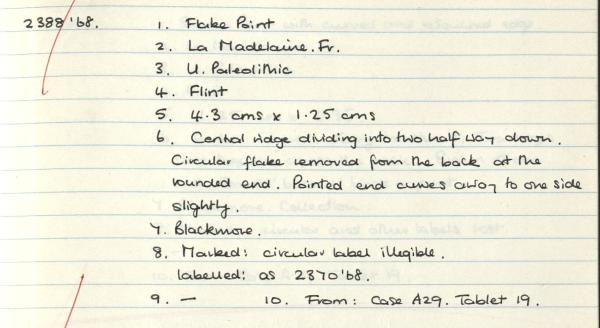 2388'68. 1. Flake Point
2. La Madelaine. Fr.
3. U. Paleolithic
4. Flint
5. 4.3 cms x 1.25 cms
6. Central ridge dividing into two half way down.
Circular flake removed from the back at the
rounded end. Pointed end curves away to one side
slightly.
7. Blackmore.
8. Marked: circular label illegible.
labelled: as 2370'68.
9. — 10. From: Case A29. Tablet 19.